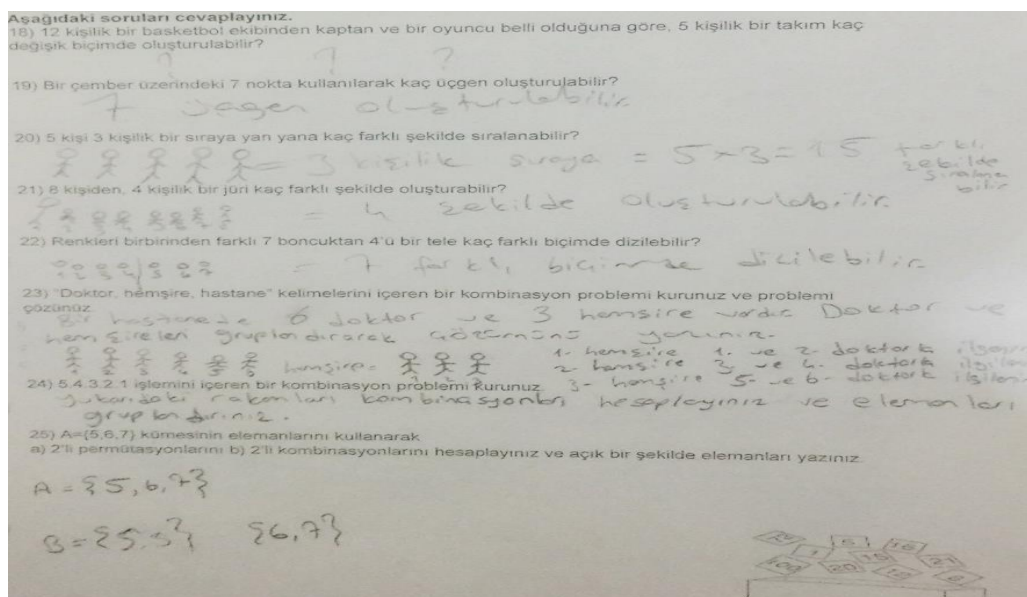 Aşağıdaki soruları cevaplayınız.
18) 12 kişilik bir basketbol ekibinden kaptan ve bir oyuncu belli olduğuna göre, 5 kişilik bir takım kaç
değişik biçimde oluşturulabilir?
? ? ?
19) Bir çember üzerindeki 7 nokta kullanılarak kaç üçgen oluşturulabilir?
7 üçgen oluşturulabilir
20) 5 kişi 3 kişilik bir sıraya yan yana kaç farklı şekilde sıralanabilir?
= 3 kişilik sıraya = 5x3=15 farklı
şekilde
bilir
21) 8 kişiden, 4 kişilik bir jüri kaç farklı şekilde oluşturabilir?
= 4 şekilde oluşturulabilir.
22) Renkleri birbirinden farklı 7 boncuktan 4'ü bir tele kaç farklı biçimde dizilebilir?
= 7 farklı biçimde dizilebilir.
23) "Doktor, hemşire, hastane" kelimelerini içeren bir kombinasyon problemi kurunuz ve problemi
çözünüz
Bir hastanede 6 doktor ve 3 hemşire vardır. Doktor ve
hemşireleri gruplandırarak çözümünü yazınız.
hemşire=
1- hemşire 1. ve 2. doktorla
2- hemşire 3. ve 4. doktorla
24) 5.4.3.2.1 işlemini içeren bir kombinasyon problemi kurunuz
3- hemşire 5- ve 6- doktorla
Yukarıdaki rakamları kombinasyonları hesaplayınız ve elemanları
gruplandırınız.
25) A={5,6,7} kümesinin elemanlarını kullanarak
a) 2'li permütasyonlarını b) 2'li kombinasyonlarını hesaplayınız ve açık bir şekilde elemanları yazınız.
A = {5,6,7}
{6,7}
20